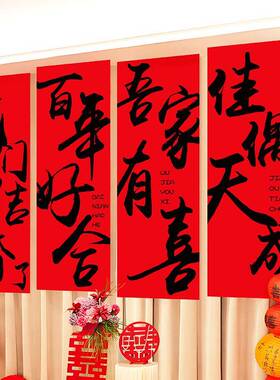 们结婚了
百年好合
BAI
NIAN
HAO
HE
吾家有喜
WU
JIA
YOU
XI
佳偶天成
JIA
OU
囍
囍